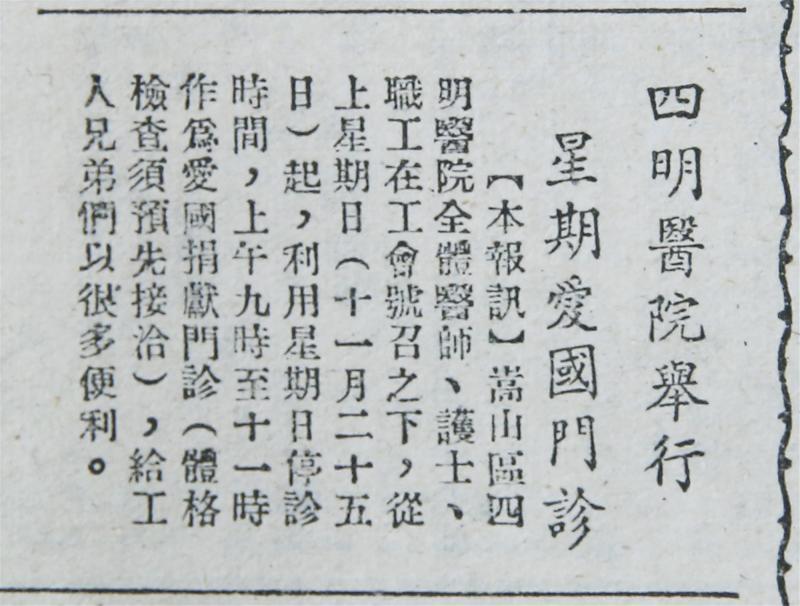 四明醫院舉行
星期愛國門診
【本報訊】嵩山區四
明醫院全體醫師、護士、
職工在工會號召之下，從
上星期日（十一月二十五
日）起，利用星期日停診
時間，上午九時至十一時
作爲愛國捐獻門診（體格
檢查須預先接洽），給工
人兄弟們以很多便利。